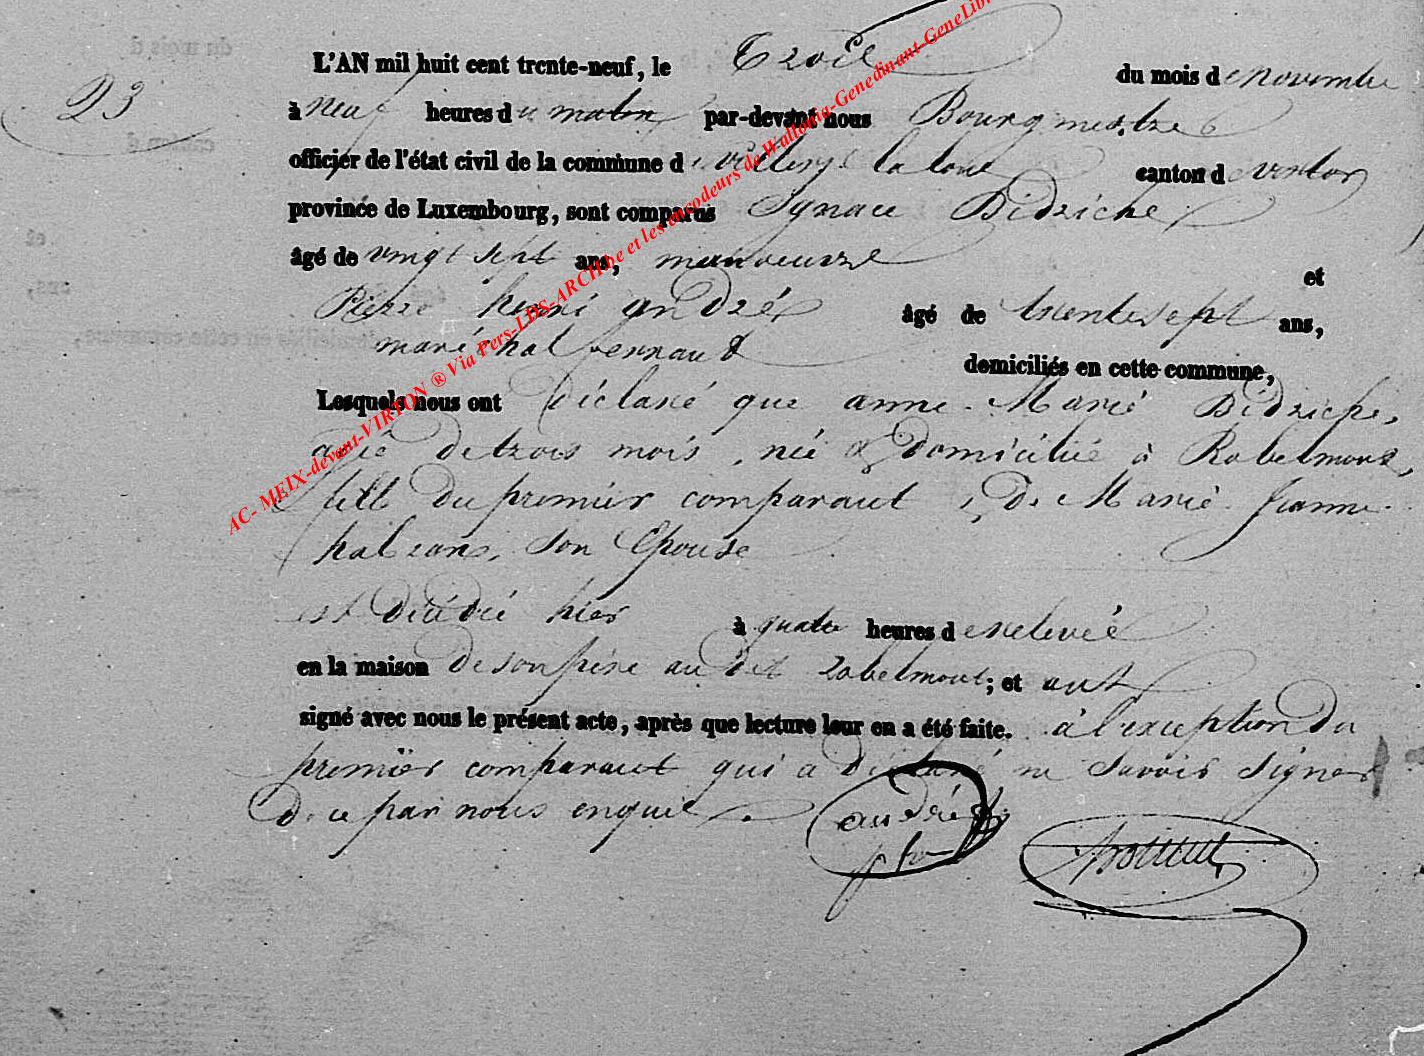 L'AN mil huit cent trente-neuf, le Trois du mois de novembre
23
à neuf heures du matin par-devant nous Bourgmestre
officier de l'état civil de la commune de villers la loue canton de virton
province de Luxembourg, sont comparus Ignace Bidriche
âgé de vingt sept ans, manoeuvre et
Pierre henri andré âgé de trente sept ans,
maréchal ferrant domiciliés en cette commune,
Lesquels nous ont déclaré que anne Marie Bidriche,
agée de trois mois, née & domiciliée à Robelmont,
fille du premier comparant & de Marie Jeanne
son Epouse
est décédée hier à quatre heures de relevée
en la maison de son père au dit robelmont; et ont
signé avec nous le présent acte, après que lecture leur en a été faite. à l'exception du
premier comparant qui a déclaré ne savoir signer
de ce par nous enquit
andré
AC- MEIX-devant-VIRTON ® Via Pers-LDS-ARCH.be et les encodeurs de Wallonia-Genedinant-GeneLib